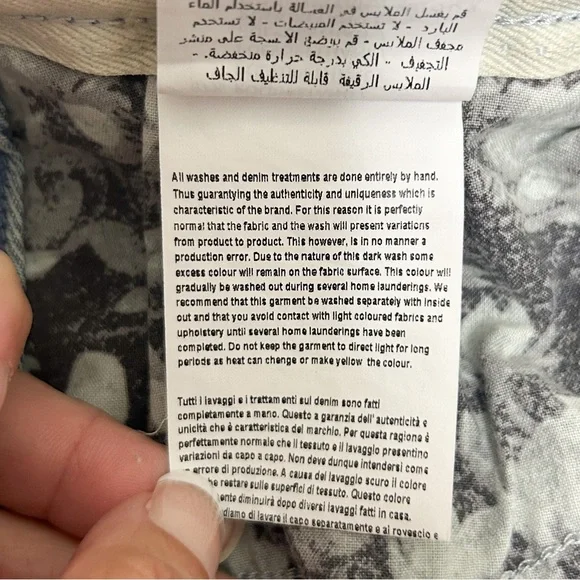 قم بغسل الملابس في الغسالة باستخدام الماء
البارد - لا تستخدم المبيضات - لا تستخدم
مجفف الملابس - قم ببعض الاسجة على منشر
التجفيف .. الكي بدرجة حرارة منخفضة. -
الملابس الرقيقة قابلة للتنظيف الجاف
All washes and denim treatments are done entirely by hand.
Thus guarantying the authenticity and uniqueness which is
characteristic of the brand. For this reason it is perfectly
normal that the fabric and the wash will present variations
from product to product. This however, is in no manner a
production error. Due to the nature of this dark wash some
excess colour will remain on the fabric surface. This colour will
gradually be washed out during several home launderings. We
recommend that this garment be washed separately with inside
out and that you avoid contact with light coloured fabrics and
upholstery until several home launderings have been
completed. Do not keep the garment to direct light for long
periods as heat can change or make yellow the colour.
Tutti i lavaggi e i trattamenti sul denim sono fatti
completamente a mano. Questo a garanzia dell'autenticità e
unicità che è caratteristica del marchio. Per questa ragione è
perfettamente normale che il tessuto e il lavaggio presentino
variazioni da capo a capo. Non deve dunque intendersi come
errore di produzione. A causa del lavaggio scuro il colore
he restare sulle superfici di tessuto. Questo colore
ente diminuirà dopo diversi lavaggi fatti in casa.
diamo di lavare il capo separatamente e al rovescio e